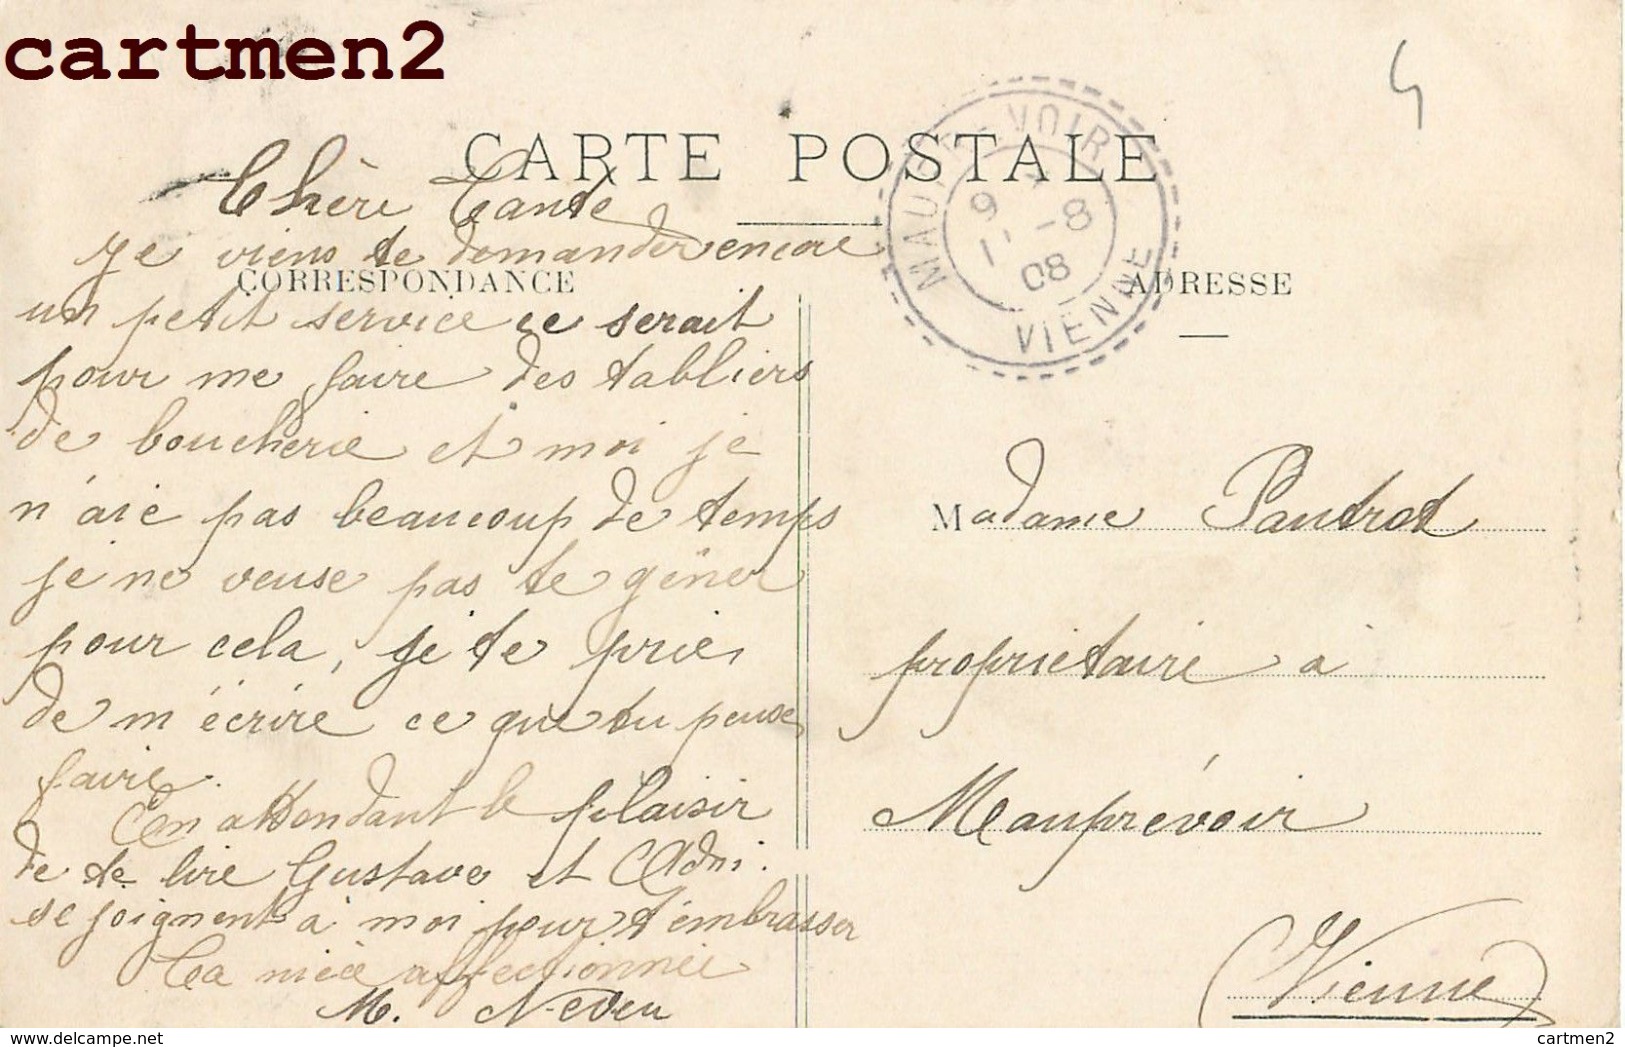 cartmen2
CARTE POSTALE
CORRESPONDANCE
ADRESSE
VOIR
9
1 -8
08
VIENNE
Chère Tante
je viens te demander encore
un petit service ce serait
pour me faire des tabliers
de boucherie et moi je
n'aie pas beaucoup de temps
je ne veuse pas te gêner
pour cela, je te prie
de m'écrire ce que tu peuse
faire.
En attendant le plaisir
de te lire Gustave et
se joignent à moi pour t'embrasser
Ta nièce affectionnée
M. Neveu
Madame Pautrot
propriétaire à
Mauprévoir
Vienne
delcampe.net
cartmen2